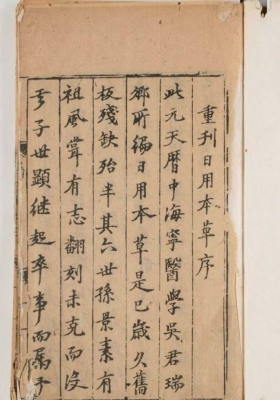 重刊日用本草序
此元天曆中海寧醫學吳君瑞
鄉所編日用本草是已歲久舊
板殘缺殆半其六世孫景素有
祖風嘗有志翻刻未克而沒
子世顯繼起卒事而屬予